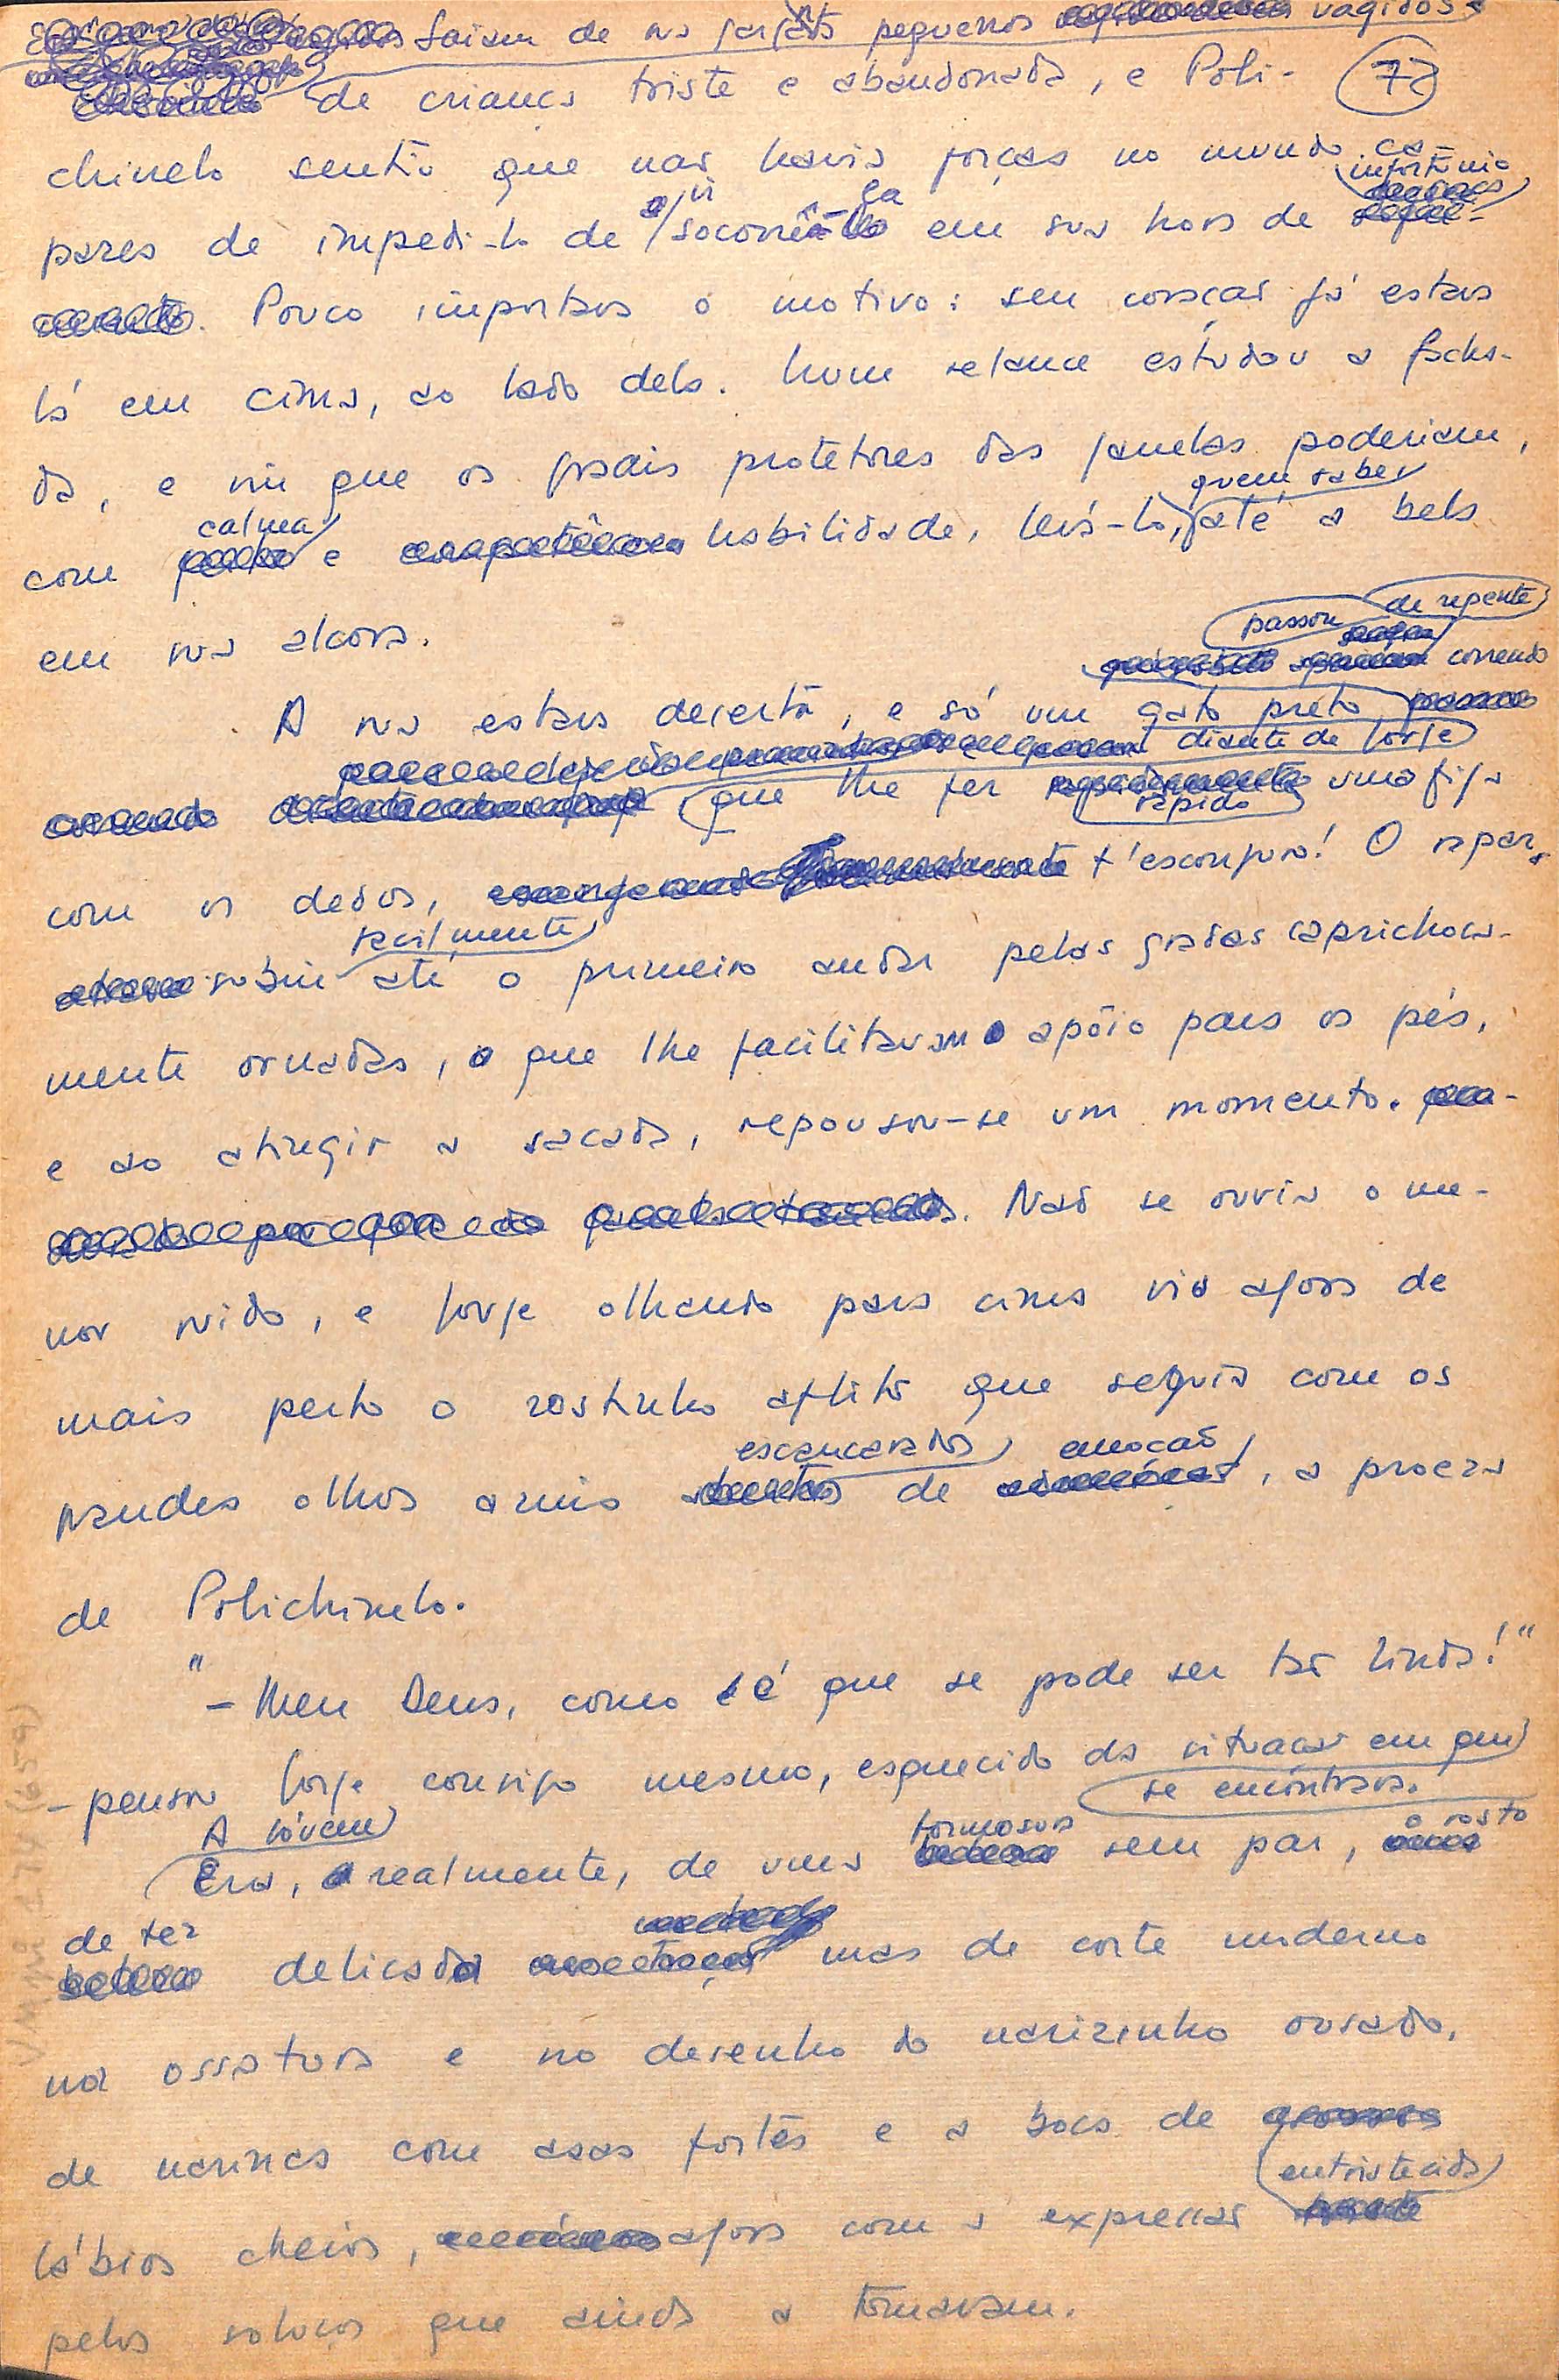 Saíam de sua garganta pequenos vagidos
de criança triste e abandonada, e Poli- 72
chinelo sentiu que não havia forças no mundo ca-
infortúnio
pazes de impedi-lo de ir socorrê-la em sua hora de
Pouco importava o motivo: seu coração já estava
lá em cima, ao lado dela. Num relance estudou a facha-
da, e viu que os gradis protetores das janelas poderiam,
quem sabe
calma
com e habilidade, levá-lo, até a bela
em sua alcova.
passou de repente
correndo
A rua estava deserta, e só um gato preto
diante de Jorge
que lhe fez uma figa
rápido
com os dedos, t'esconjuro! O rapaz
facilmente
subiu até o primeiro andar pelas grades caprichosa-
mente ornadas, que lhe facilitavam apôio para os pés,
e ao atingir a sacada, repousou-se um momento.
Não se ouvia o me-
nor ruído, e Jorge olhando para cima via agora de
mais perto o rostinho aflito que seguia com os
escancarados emoção
grandes olhos azuis de , a proeza
de Polichinelo.
"- Meu Deus, como é que se pode ser tão linda!"
- pensou Jorge consigo mesmo, esquecido da situação em que
se encontrava.
A jóvem
formosura o rosto
Era, realmente, de uma sem par,
de tez
delicada mas de corte moderno
na ossatura e no desenho do narizinho ousado,
de narinas com asas fortes e a boca de
entristecida
lábios cheios, agora com a expressão
pelos soluços que ainda a tomavam.